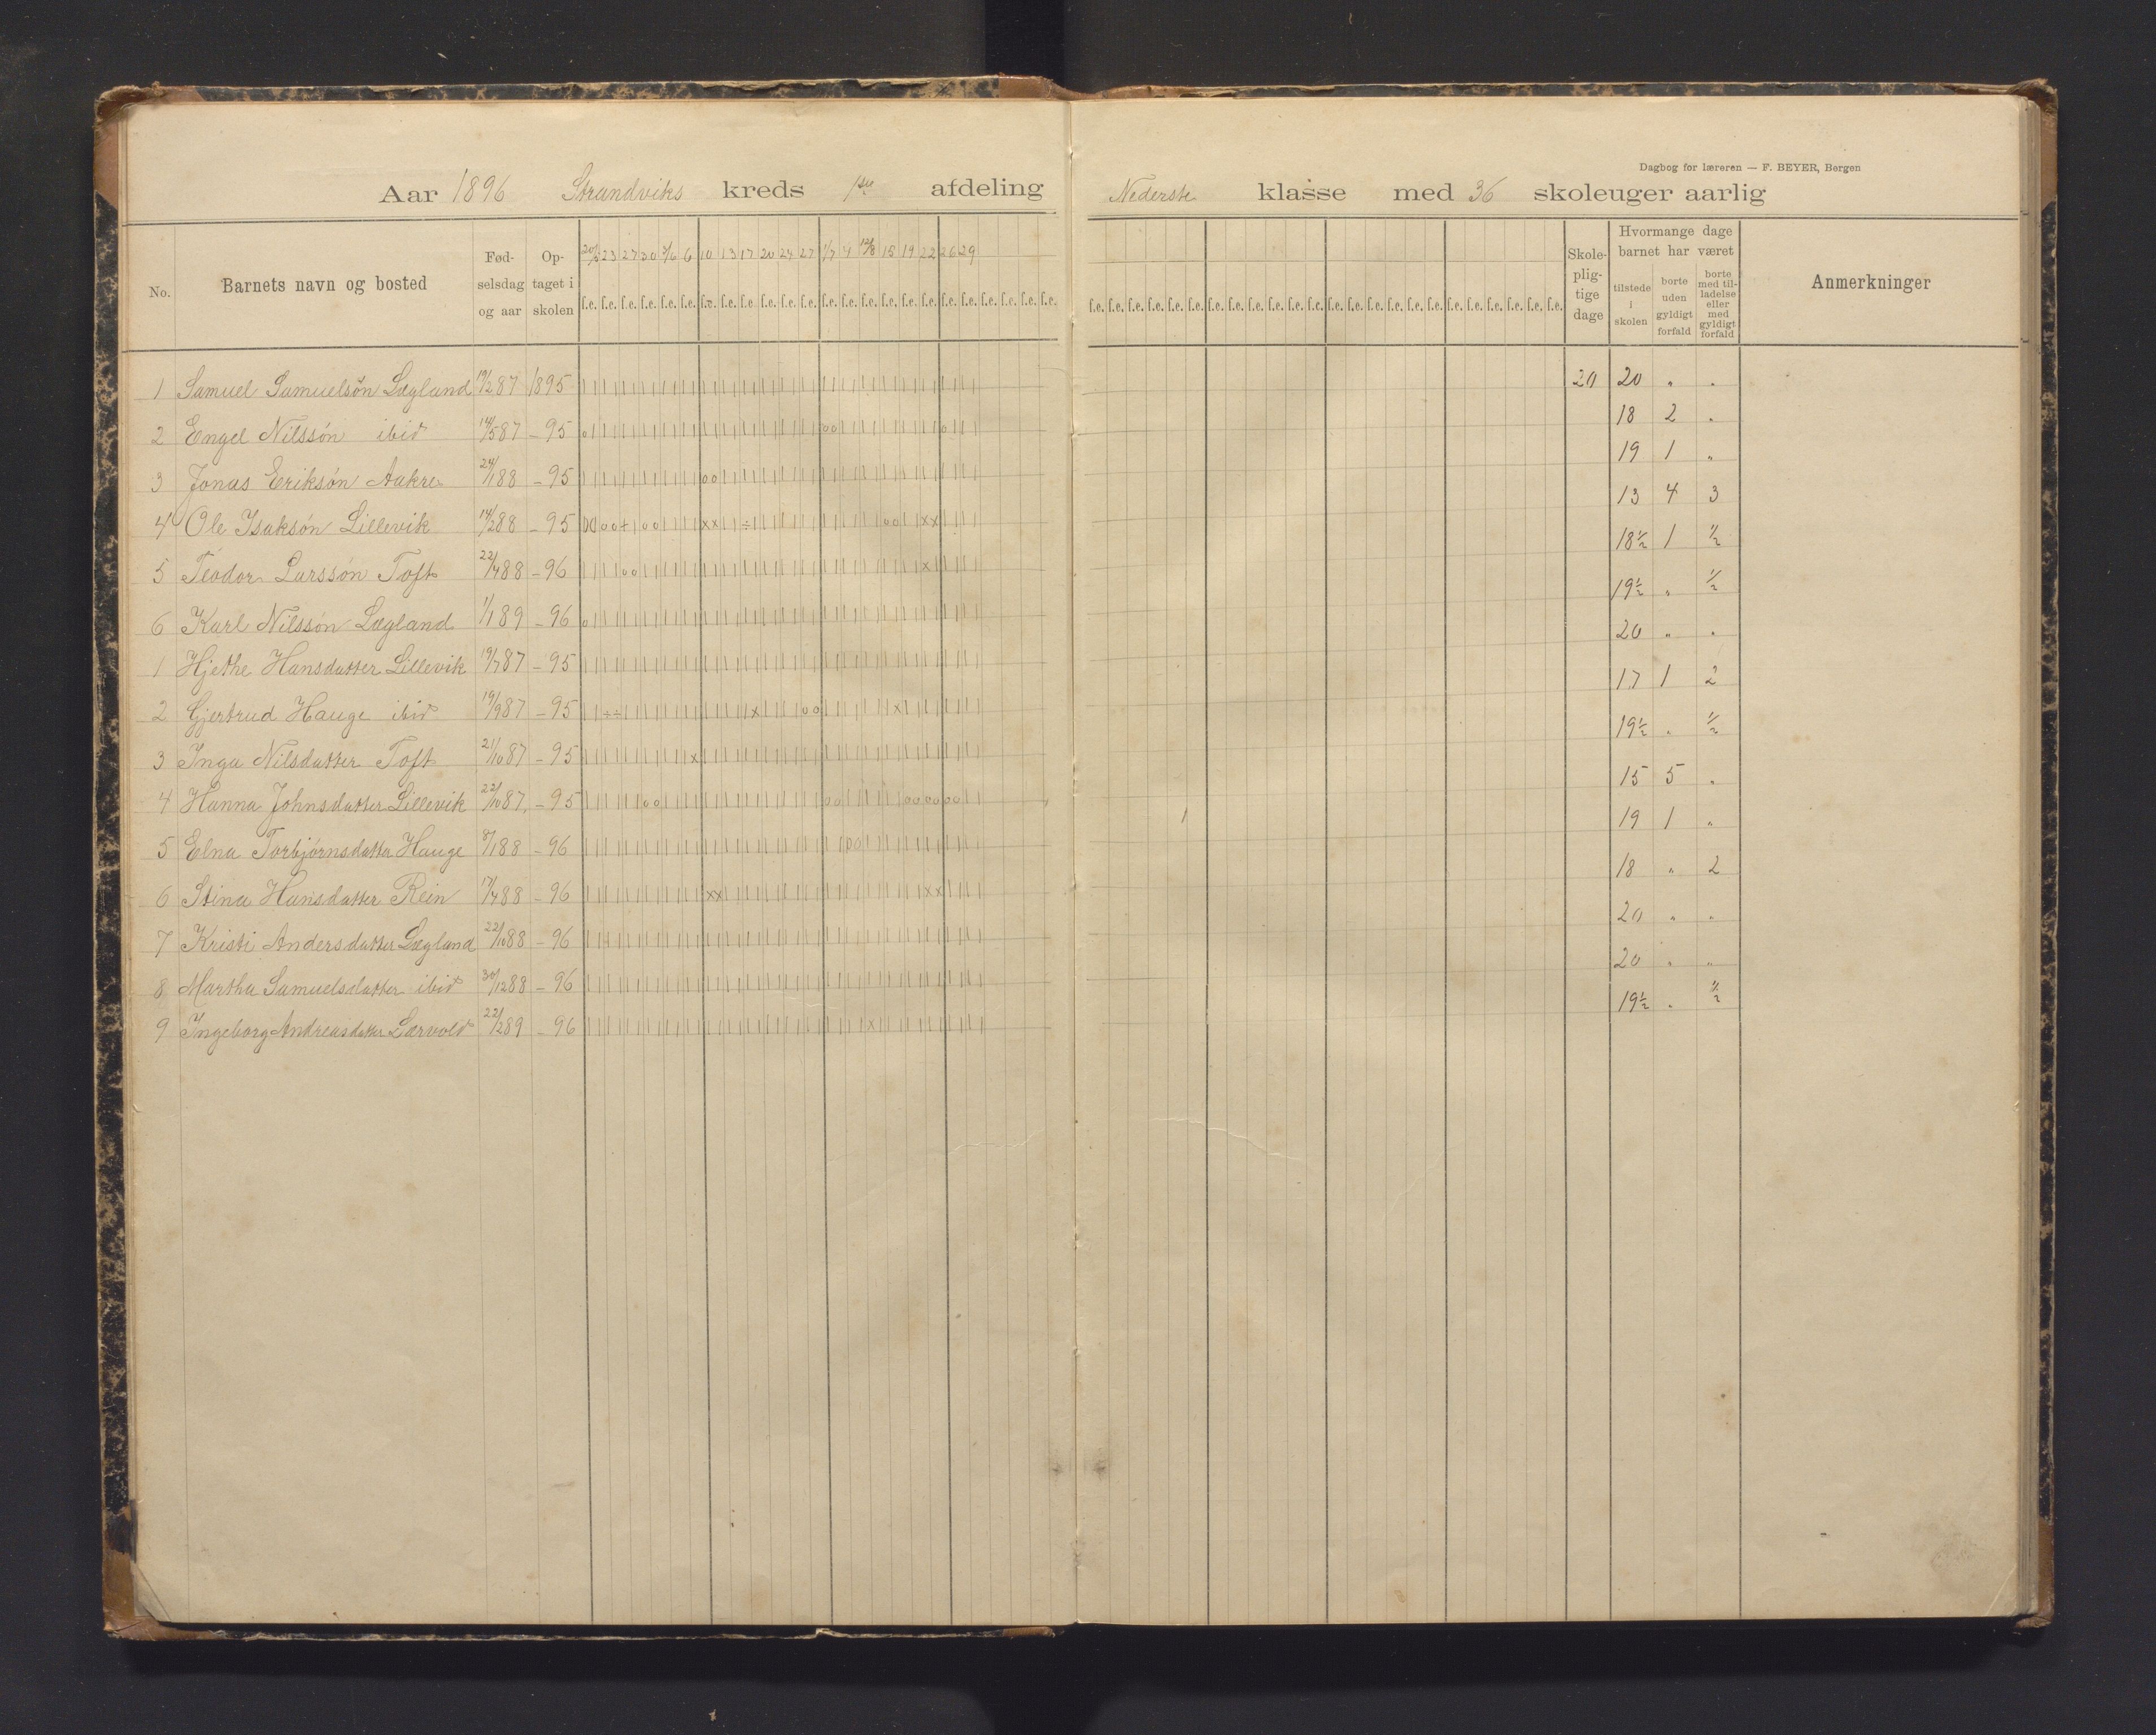 Dagbog for læreren — F. BEYER, Bergen
Aar 1896 Strandviks kreds 1ste afdeling Nederste klasse med 36 skoleuger aarlig
No. Barnets navn og bosted Fødselsdag og aar Optaget i skolen 20/5 23 27 30 3/6 6 10 13 17 20 24 27 1/7 4 12/8 15 19 22 26 29
f.e. f.e. f.e. f.e. f.e. f.e. f.e. f.e. f.e. f.e. f.e. f.e. f.e. f.e. f.e. f.e. f.e. f.e. f.e. f.e. f.e. f.e. f.e. f.e.
Skolepligtige dage Hvormange dage barnet har været tilstede i skolen borte uden gyldigt forfald borte med tilladelse eller med gyldigt forfald Anmerkninger
1 Samuel Samuelsøn Lægland 19/2 87 1895 20 20 " "
2 Engel Nilssøn ibid 14/5 87 - 95 18 2 "
3 Jonas Eriksøn Aakre 24/1 88 - 95 19 1 "
4 Ole Isaksøn Lillevik 14/2 88 - 95 13 4 3
5 Teodor Larssøn Toft 22/4 88 - 96 18½ 1 ½
6 Karl Nilssøn Lægland 1/1 89 - 96 19½ " ½
1 Hjethe Hansdatter Lillevik 19/7 87 - 95 20 " "
2 Gjertrud Hauge ibid 19/9 87 - 95 17 1 2
3 Inga Nilsdatter Toft 21/10 87 - 95 19½ " ½
4 Hanna Johnsdatter Lillevik 22/10 87 - 95 15 5 "
5 Elna Torbjørnsdatter Hauge 8/1 88 - 96 19 1 "
6 Stina Hansdatter Rein 17/4 88 - 96 18 " 2
7 Kristi Andersdatter Lægland 22/10 88 - 96 20 " "
8 Martha Samuelsdatter ibid 30/12 88 - 96 20 " "
9 Ingeborg Andreasdatter Lærvold 22/2 89 - 96 19½ " ½